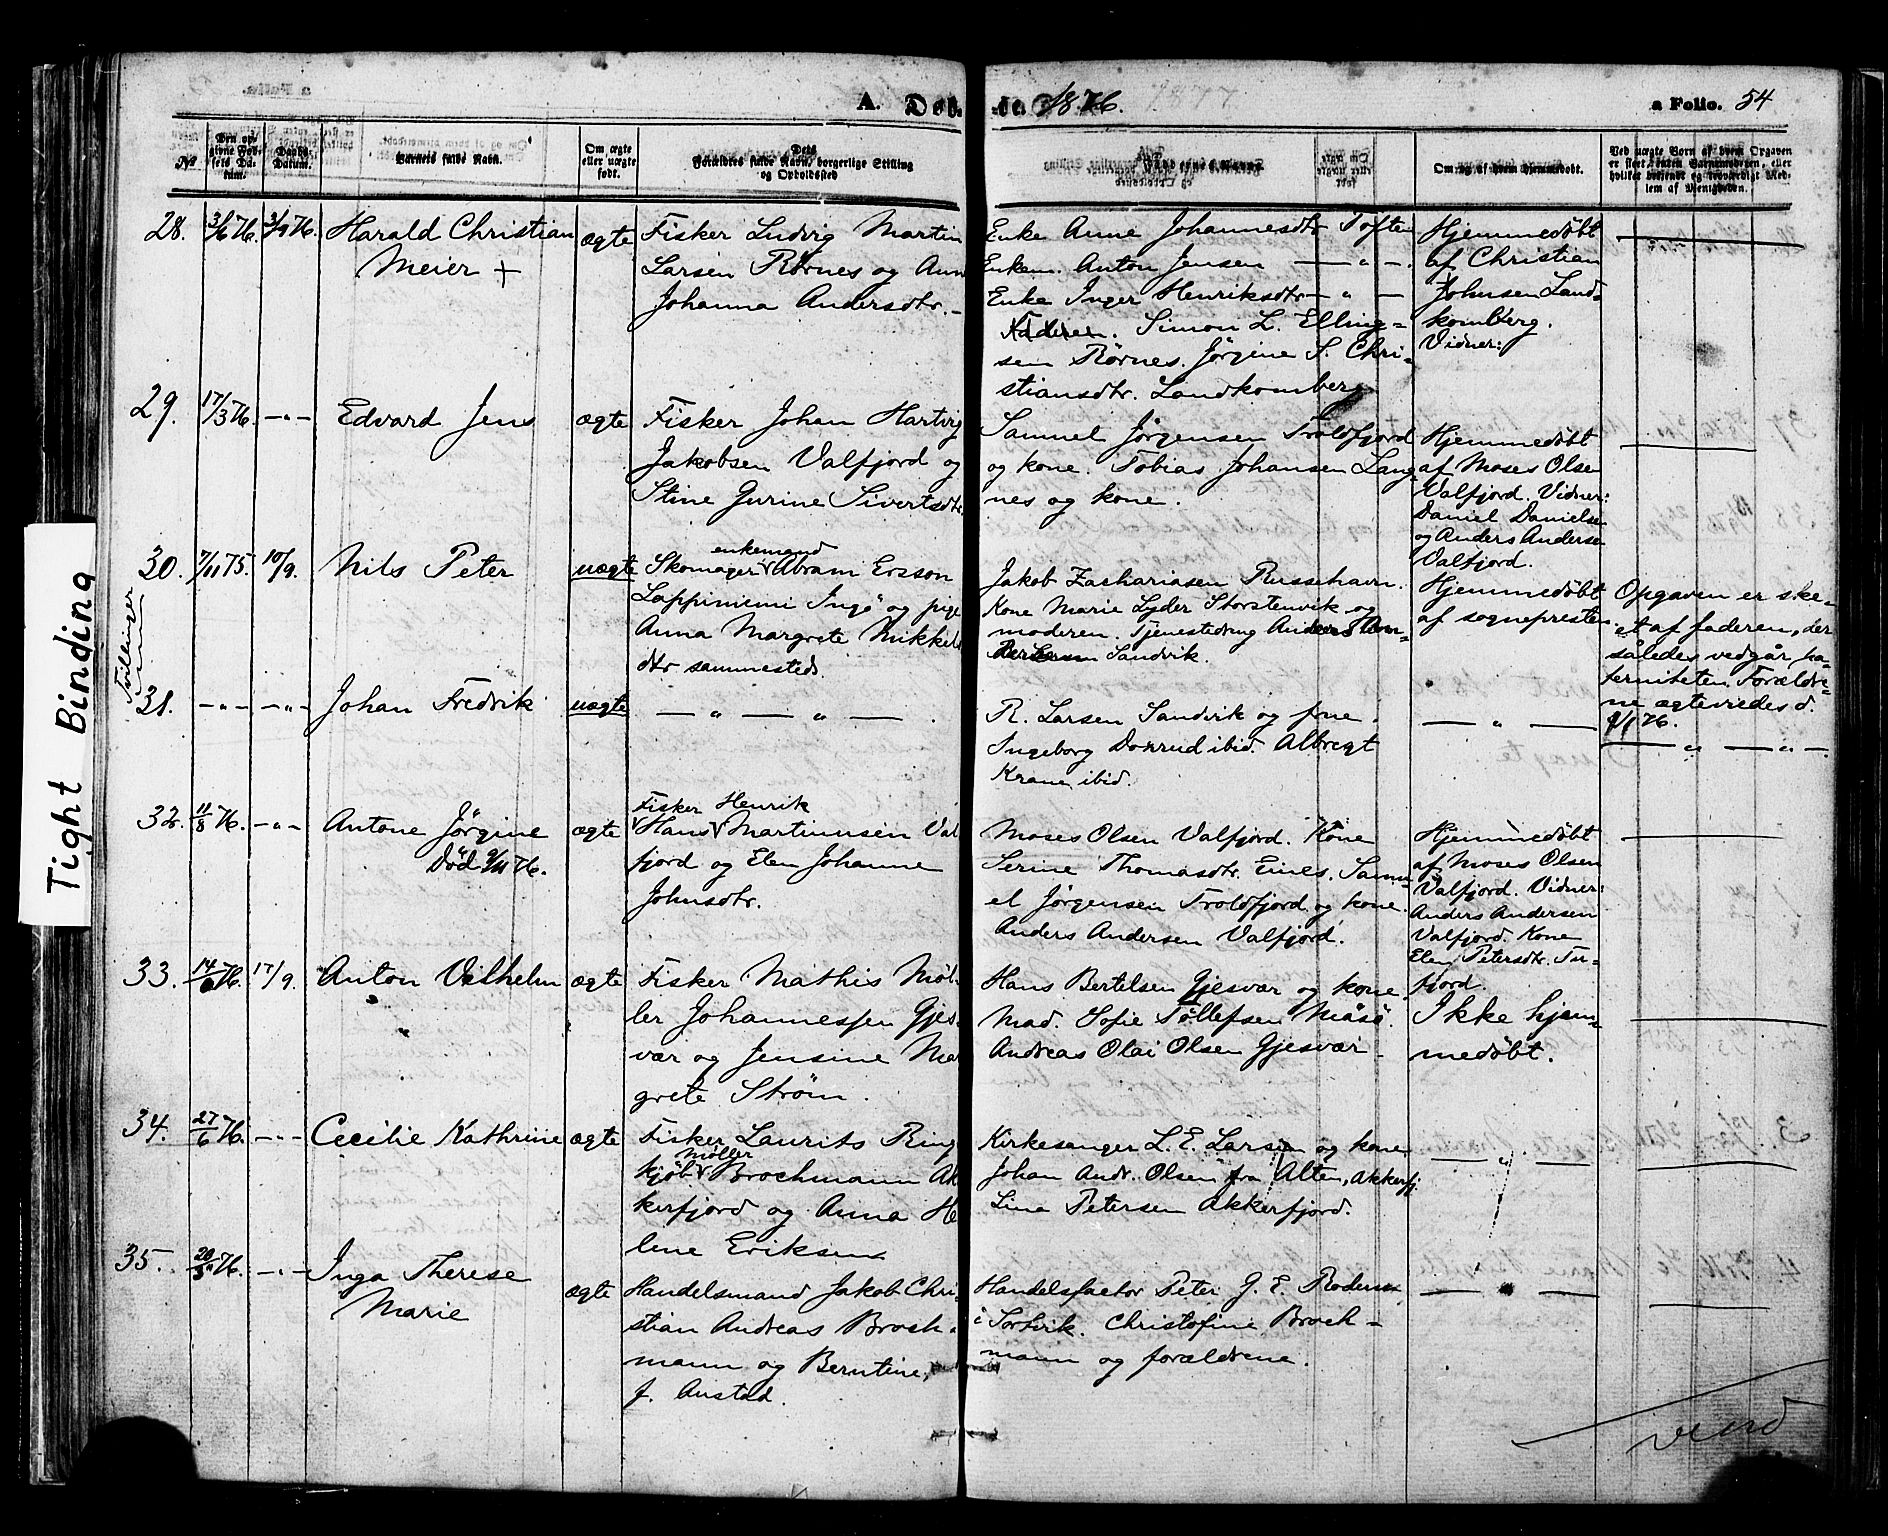 Tight Binding
A. Døb
te. 1876. 1877
a Folio. 54
No
Den opgivne Fødsels Datum.
Daabs-Datum.
Barnets fulde Navn.
Om ægte eller uægte født.
Forældres fulde Navn, borgerlige Stilling og Opholdssted
Om og af hvem hjemmedøbt.
Ved uægte Børn af hvem Opgaven er skeet, enten Barnemoderen, eller hvilket bekjendt og troværdigt Medlem af Menigheden.
28. 3/6 76. 3/9 76. Harald Christian
Meier +
ægte
Fisker Ludvig Martin
Larsen Rørnes og Ann
Johanna Andersdtr. -
Enke Anne Johannesdtr Toften
Enkem. Anton Jensen — " —.
Enke Inger Henriksdtr — " —
Faderen. Simon L. Elling=
sen Rørnes. Jørgine S. Chri-
stiansdtr. Landkomberg
Hjemmedøbt
af Christian
Johnsen Land=
komberg.
Vidner:
29. 17/3 76. — " — Edvard Jens
ægte
Fisker Johan Hartvig
Jakobsen Valfjord og
Stine Gurine Sivertsdtr.
Samuel Jørgensen Troldfjord
og kone. Tobias Johansen Lang
nes og kone.
Hjemmedøbt
af Moses Olsen
Valfjord. Vidner:
Daniel Danielsen
og Anders Andersen
Valfjord.
Tvillinger
30. 7/11 75. 10/9. Nils Peter
uægte
enkemand
Skomager Abram Ersson
Lappiniemi Ingö og pige
Anna Margrete Mikkels
dtr sammesteds.
Jakob Zachariasen Russehavn.
Kone Marie Lyder Storstenvik og
moderen. Tjenestedrng Anders
Sandvik.
Hjemmedøbt
af sognepresten.
Opgaven er ske-
et af faderen, der
således vedgår pa-
terniteten. Forældre-
ne ægteviedes d.
9/1 76.
31. — " — — " — Johan Fredrik
uægte
— " — " — .
R. Larsen Sandvik og frue.
Ingeborg Donrud ibid. Albregt
Krane ibid.
— " —
— " — " —
32. 11/8 76. — " — Antone Jørgine
Død 9/11 76.
ægte
Fisker Henrik
Hans Martinusen Val
fjord og Elen Johanne
Johnsdtr.
Moses Olsen Valfjord. Kone
Serine Thomasdtr. Eines. Samu-
el Jørgensen Troldfjord og kone.
Anders Andersen Valfjord.
Hjemmedøbt
af Moses Olsen
Valfjord. Vidner:
Anders Andersen
Valfjord. Kone
Elen Petersdtr. Tu-
fjord.
33. 14/6 76. 17/9. Anton Vilhelm
ægte
Fisker Mathis Møl-
ler Johannessen Gjes-
vær og Jensine Mar
grete Strøm.
Hans Bertelsen Gjesvær og kone.
Mad. Sofie Tollefsen Måsö.
Andreas Olai Olsen Gjesvær.
Ikke hjem-
medøbt.
34. 27/6 76. — " — Cecilie Kathrine
ægte
Fisker Laurits Ring
Møller
kjøb Brochmann Ak
kerfjord og Anna He
lene Eriksen
Kirkesanger L. E. Larsen og kone
Johan Andr. Olsen fra Alten, Akkerfj.
Lina Petersen Akkerfjord.
— " —
35. 20/5 76. — " — Inga Therese
Marie
ægte
Handelsmand Jakob Chri-
stian Andreas Broch-
mann og Berntine,
f. Anstad.
Handelsfactor Peter G. E. Rodem
i Sortvik. Christofine Broch-
mann og forældrene.
— " —
vend